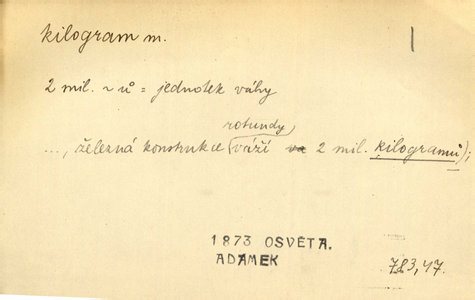 kilogram m.
2 mil. ~ ů = jednotek váhy
rotundy
..., železná konstrukce (váží 2 mil. kilogramů);
1873 OSVĚTA.
ADAMEK
783,47.